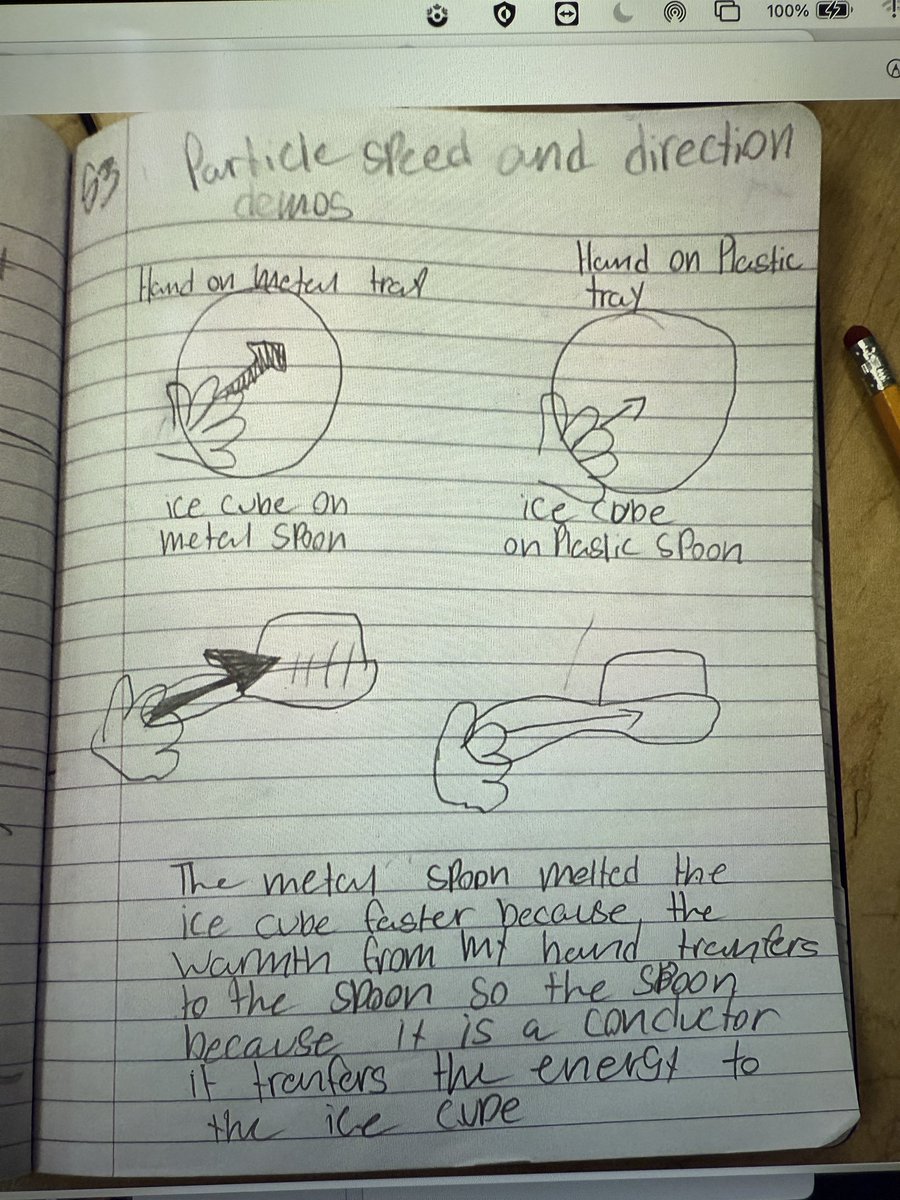 100%
63
Particle speed and direction
demos
Hand on metal tray
Hand on Plastic
tray
ice cube on
metal spoon
ice cube
on Plastic spoon
The metal spoon melted the
ice cube faster because, the
warmth from my hand tranfers
to the spoon so the spoon
because it is a conductor
it tranfers the energy to
the ice cube